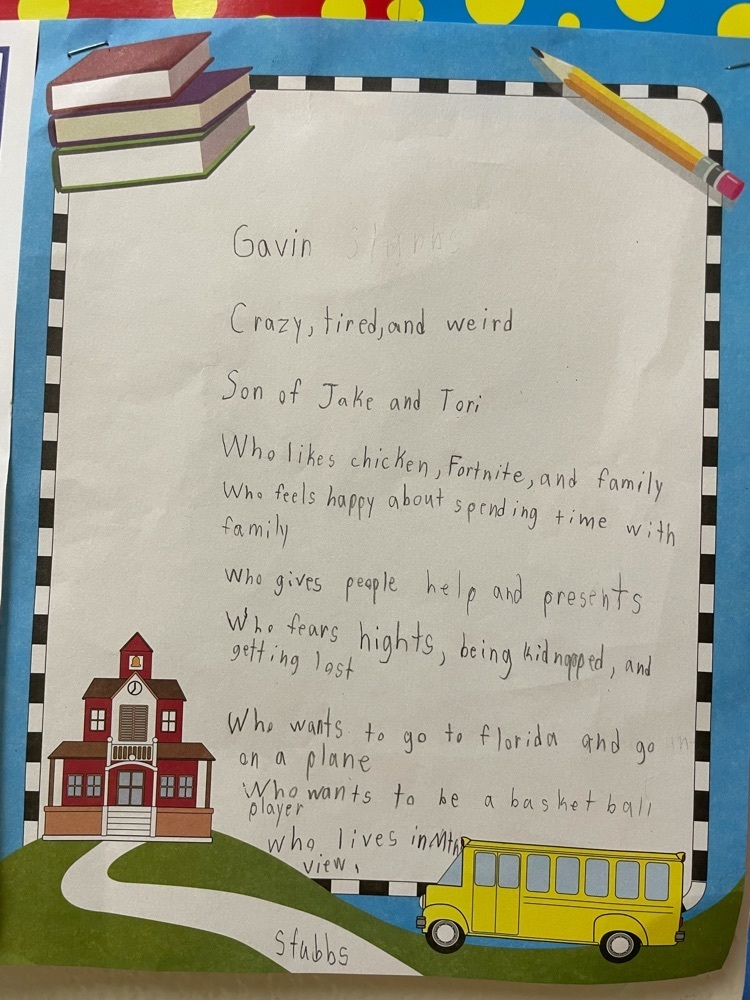 Gavin
Crazy, tired, and weird
Son of Jake and Tori
Who likes chicken, Fortnite, and family
Who feels happy about spending time with
family
Who gives people help and presents
Who fears hights, being kidnapped, and
getting lost
Who wants to go to florida and go
on a plane
Who wants to be a basket ball
player
who lives in Mtn
view.
Stubbs